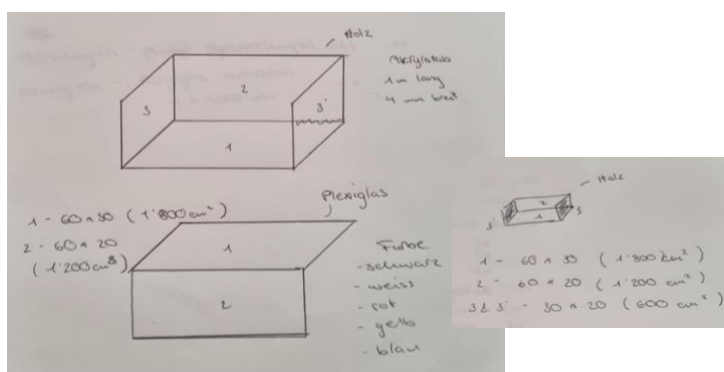 Holz
Acrylstab
1m lang
4 mm breit
2
3
3'
1
Plexiglas
1 - 60 x 30 (1'800 cm²)
2 - 60 x 20
(1'200 cm²)
1
2
Farbe
- schwarz
- weiss
- rot
- gelb
- blau
Holz
2
3' 1 3
1 - 60 x 30 (1'800 cm²)
2 - 60 x 20 (1'200 cm²)
3 & 3' - 30 x 20 (600 cm²)